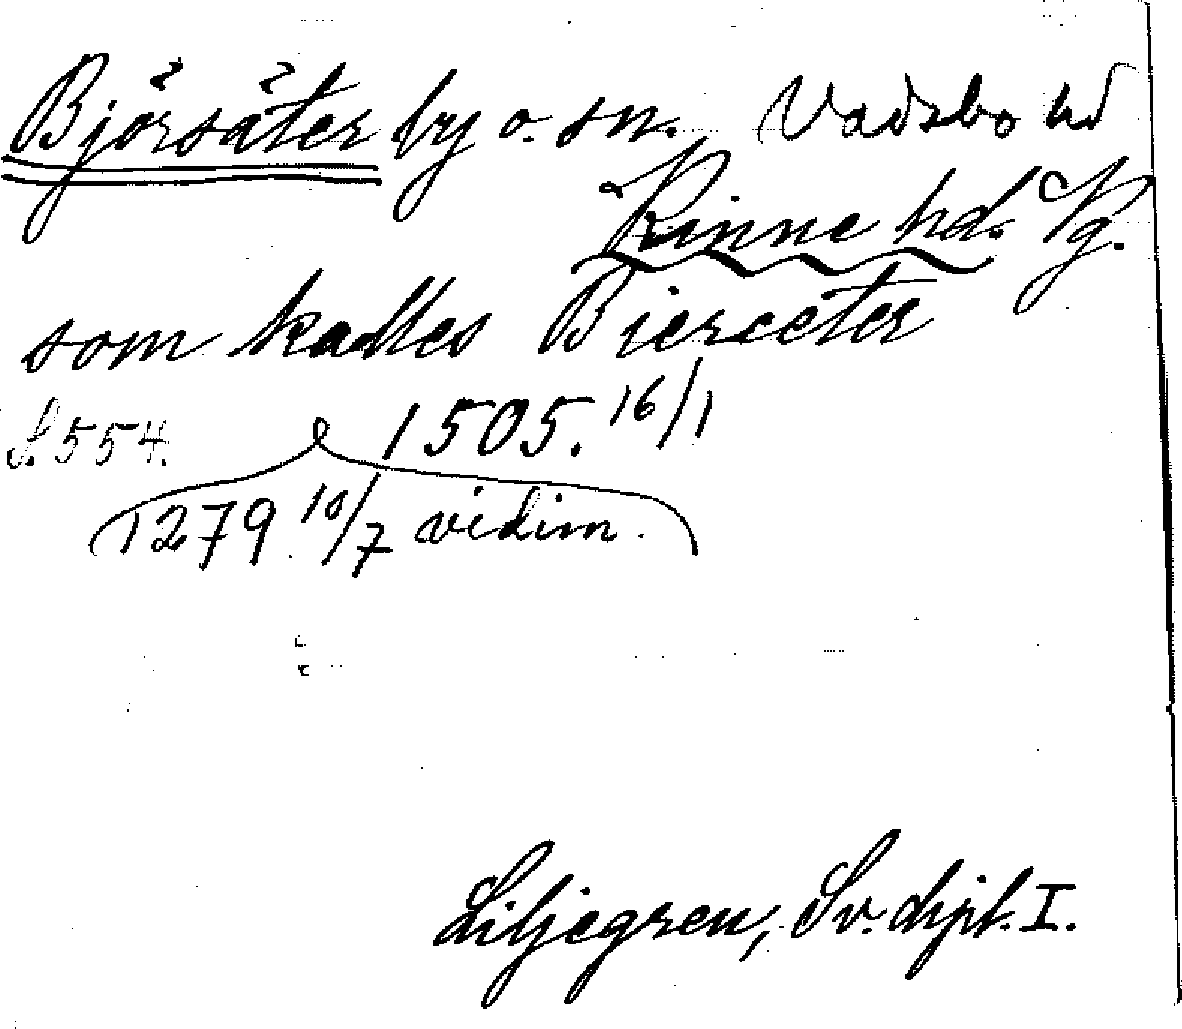 Björsäter by o. sn. Vadsbo hd
Kinne hd. Vg.
som kalles Bierceter
S. 554. 1505. 16/1
1279. 10/7 vidim.
Liljegren, Sv. dipl. I.